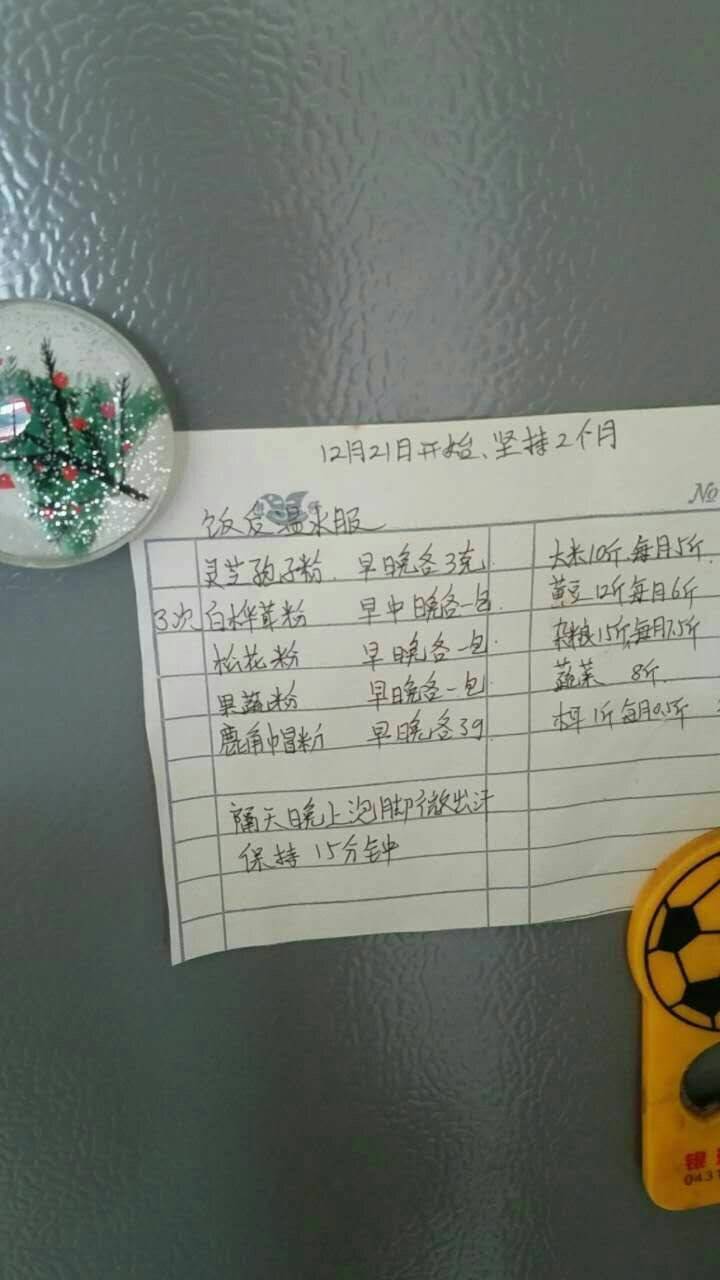 12月21日开始、坚持2个月
No
饭后温水服
灵芝孢子粉. 早晚各3克
3次 白桦茸粉 早中晚各一包
松花粉 早晚各一包
果蔬粉 早晚各一包
鹿角帽粉 早晚各3g
隔天晚上泡脚微出汗
保持15分钟
大米10斤,每月5斤.
黄豆12斤每月6斤
杂粮15斤,每月7.5斤
蔬菜 8斤.
木耳1斤每月0.5斤
银
0431